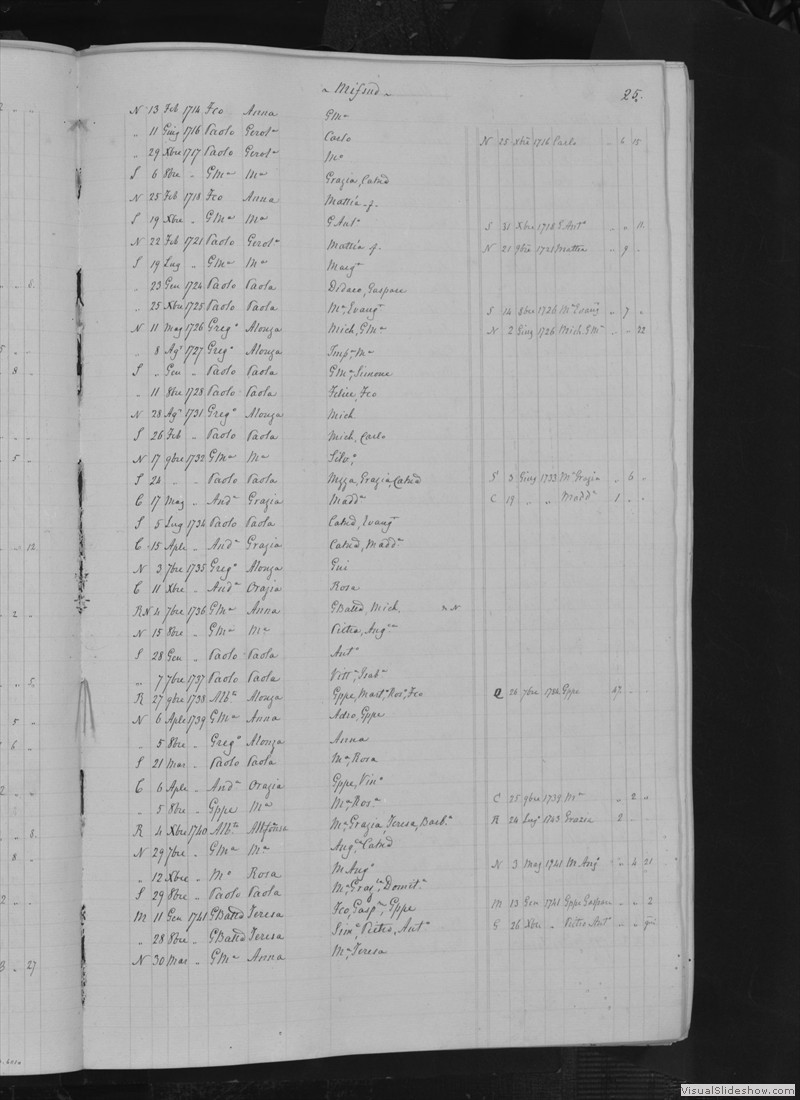 Mifsud 25.
N 13 Feb 1714 Fco Anna Gma
„ 11 Giug 1716 Paolo Gerola Carlo N 25 Xbre 1716 Carlo „ 6 15
„ 29 Xbre 1717 Paolo Gerola Ma
S 6 8bre „ GMa Ma Grazia, Catnd
N 25 Feb 1718 Fco Anna Mattia f.
S 19 Xbre „ GMa Ma GAnto S 31 Xbre 1718 GAnto „ „ 11
N 22 Feb 1721 Paolo Gerola Mattia f. N 21 9bre 1721 Mattia „ 9 „
S 19 Lug „ GMa Ma Marga
„ 23 Gen 1724 Paolo Paola Didaco, Gaspare
„ 25 Xbre 1725 Paolo Paola Ma, Evanga S 14 8bre 1726 Ma Evanga „ 7 „
N 11 Mag 1726 Grego Alonza Mich, GMa N 2 Giug 1726 Mich GMa „ „ 22
„ 8 Ago 1727 Grego Alonza Impa Ma
S „ Gen „ Paolo Paola GMa, Simone
„ 11 8bre 1728 Paolo Paola Felice, Fco
N 28 Ago 1731 Grego Alonza Mich
S 26 Feb „ Paolo Paola Mich, Carlo
N 17 9bre 1732 GMa Ma
S 24 „ „ Paolo Paola Nezza, Grazia, Catnd S 3 Giug 1733 Ma Grazia „ 6 „
C 17 Mag „ Anda Grazia Madda C 19 „ „ Madda 1 „ „
S 5 Lug 1734 Paolo Paola Catnd, Evanga
C 15 Aple „ Anda Grazia Catnd, Madda
N 3 7bre 1735 Grego Alonza Gui
C 11 Xbre „ Anda Orazia Rosa
RN 4 7bre 1736 GMa Anna GBatta, Mich. „ N
N 15 8bre „ GMa Ma Pietra, Anga
S 28 Gen „ Paolo Paola Anta
„ 7 7bre 1737 Paolo Paola Vitta, Isaba
R 27 9bre 1738 Alba Alonza Gppe, Mart, Ros, Fco Q 26 7bre Gppe 47 „ „
N 6 Aple 1739 GMa Anna Gppe
„ 5 8bre „ Grego Alonza Anna
S 21 Mar „ Paolo Paola Ma, Rosa
C 6 Aple „ Anda Orazia Gppe, Vino
„ 5 8bre „ Gppe Ma Ma, Rosa C 25 9bre 1739 Ma „ 2 „
R 4 Xbre 1740 Alba Alfonsa Ma Grazia, Teresa, Barba R 24 Lug 1743 Grazia 2 „ „
N 29 7bre „ GMa Ma Anga, Catnd
„ 12 Xbre „ Mo Rosa M Ango N 3 Mag 1741 M Ango „ 4 21
S 29 8bre „ Paolo Paola Ma, Graza, Domita
M 11 Gen 1741 GBatta Teresa Fco, Gaspa, Gppe M 13 Gen 1741 Gppe Gaspare „ „ 2
„ 28 8bre „ GBatta Teresa Sima, Pietro, Anto G 26 Xbre „ Pietro Ant „ „
N 30 Mar „ GMa Anna Ma, Teresa
VisualSlideshow.com